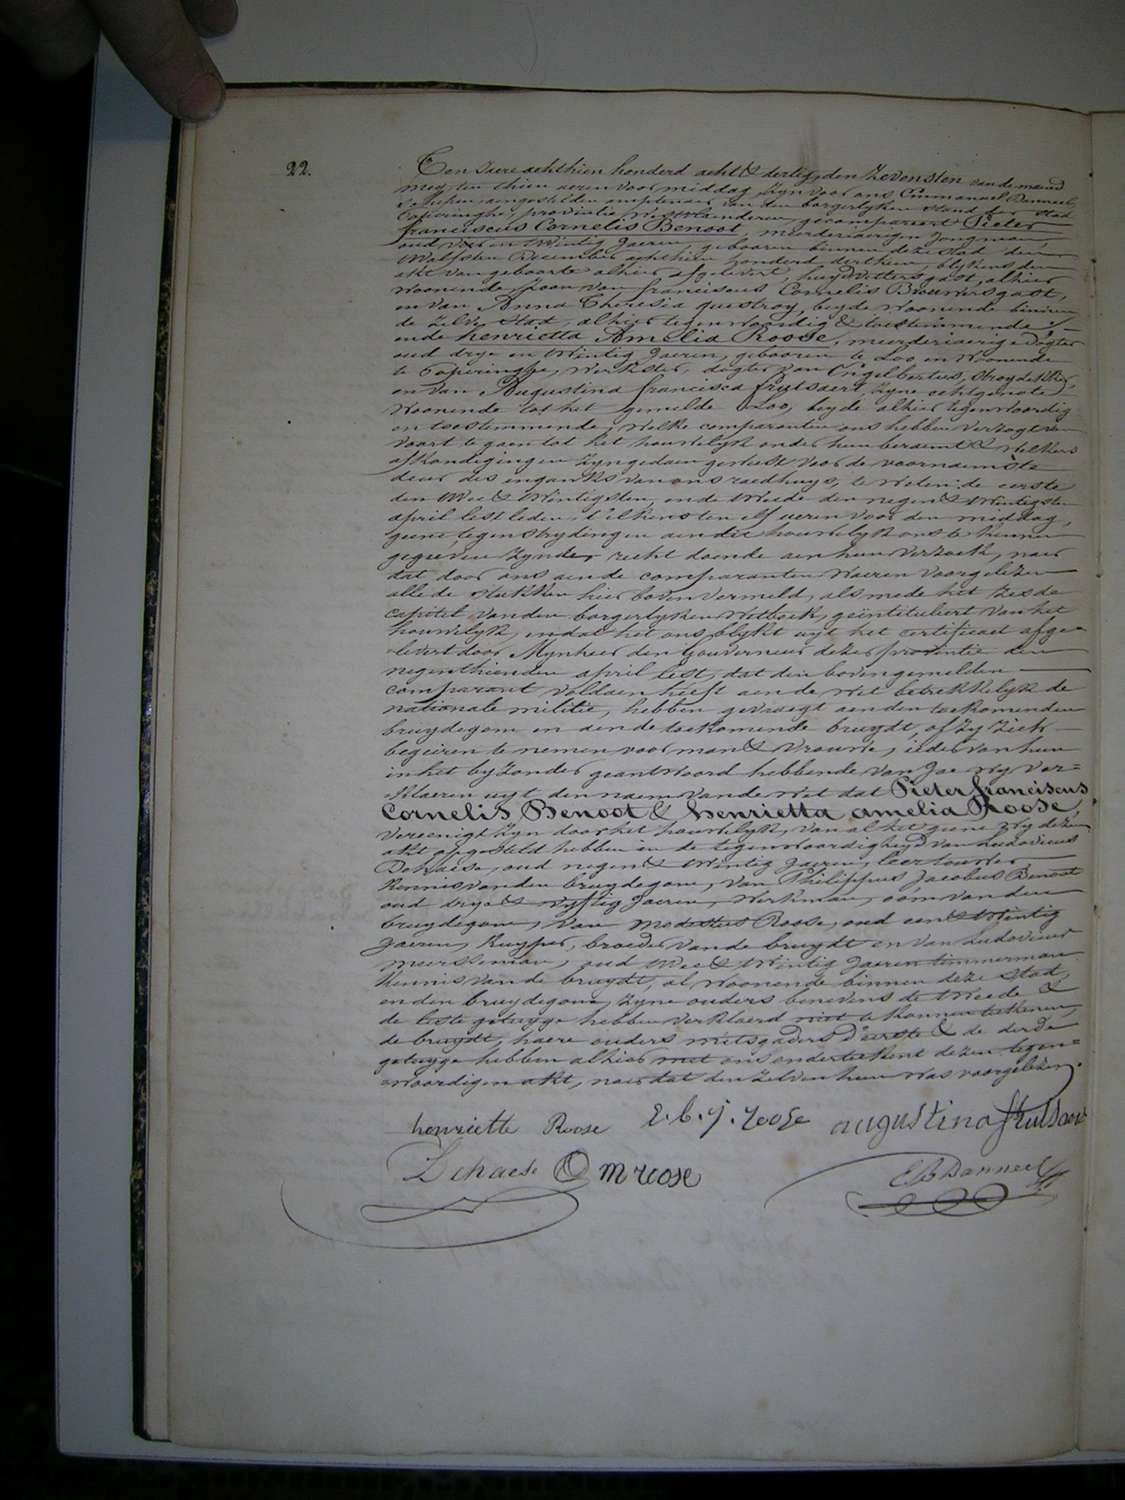 22.
Ten Jaere achthien honderd acht & dertig, den Zevensten van de maend
mey, ten thien ueren voor middag, Zyn voor ons Emmanuel Danneel,
Schepen, aengestelden amptenaer van den borgerlyken stand der stad
Poperinghe, provintie Westvlaenderen, gecompareert Pieter
franciscus Cornelis Benoot, meerderjarigen Jongman,
oud vier en twintig Jaeren, gebooren binnen deze stad den
twalfsten December achthien honderd derthien, blykens den
akt van geboorte alhier afgelevert, huydevettersgast, alhier
woonende, Zoon van franciscus Cornelis Brouwersgast,
en van Anna Theresia questroy, beyde woonende binnen
de Zelve stad, alhier tegenwoordig & toestemmende;
ende henrietta Amelia Roose, meerderjarige dogter
oud drye en twintig Jaeren, gebooren te Loo, en woonende
te Poperinghe, werkster, dogter van Engelbertus, stroydekker,
en van Augustina francisca frutsaert, Zyne echtgenote
woonende tot het gemelde Loo, beyde alhier tegenwoordig
en toestemmende; welke comparanten ons hebben verzogt van
voort te gaen tot het houwelyk onder hun beraemt & welkers
afkondigingen Zyn gedaen geweest voor de voornaemste
deur des ingangs van ons raedhuys, te weten: de eerste
den twee & twintigsten, en de tweede den negen & twintigsten
april lest leden, t'elkens ten elf ueren voor den middag,
geene tegenstrydingen aen dit houwelyk ons te kennen
gegeven Zynde, recht doende aen hun verzoek, naer
dat door ons aen de comparanten waeren voorgelezen
alle de stukken hier boven vermeld, als mede het Zesde
capittel van den borgerlyken wetboek, geïntituleert van het
houwelyk, en dat het ons blykt uyt het certificaet afge-
levert door Mynheer den Gouverneur dezer provintie den
negenthienden april lest, dat den boven gemelden
comparant voldaen heeft aen de wet betrekkelyk de
nationale militie, hebben gevraegt aen den toekomenden
bruydegom en aen de toekomende bruydt, of Zy Zich
begeiren te nemen voor man & vrouwe, ieder van hun
in het byzonder geantwoord hebbende van Jae wy ver-
klaeren uyt den naem van de wet dat Pieter franciscus
Cornelis Benoot & henrietta amelia Roose,
vereenigt Zyn door het houwelyk, van al het geene wy dezen
akt opgesteld hebben in de tegenwoordigheyd van Ludovicus
Dehaese, oud negen & twintig Jaeren, leertouwer,
kennis van den bruydegom, van Philippus Jacobus Benoot
oud drye & vyftig Jaeren, werkman, oom van den
bruydegom, van modestus Roose, oud een & twintig
Jaeren, kuyper, broeder van de bruydt en van Ludovicus
meersseman, oud twee & twintig Jaeren timmerman
kennis van de bruydt, al woonende binnen deze stad,
en den bruydegom, Zyne ouders benevens de tweede &
de leste getuyge hebben verklaerd niet te konnen teekenen,
de bruydt, haere ouders mitsgaders d'eerste & de derde
getuyge hebben alhier met ons onderteekent dezen tegen-
woordigen akt, naer dat den Zelven hun was voorgelezen.
henriette Roose E.C.J. roose augustina frutsaert
L Dehaese M roose E B Danneel